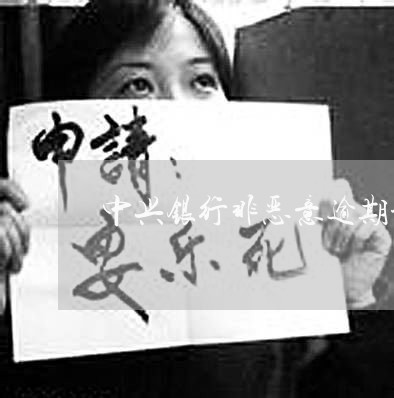 申請：
中央银行非恶意逾期
安乐死